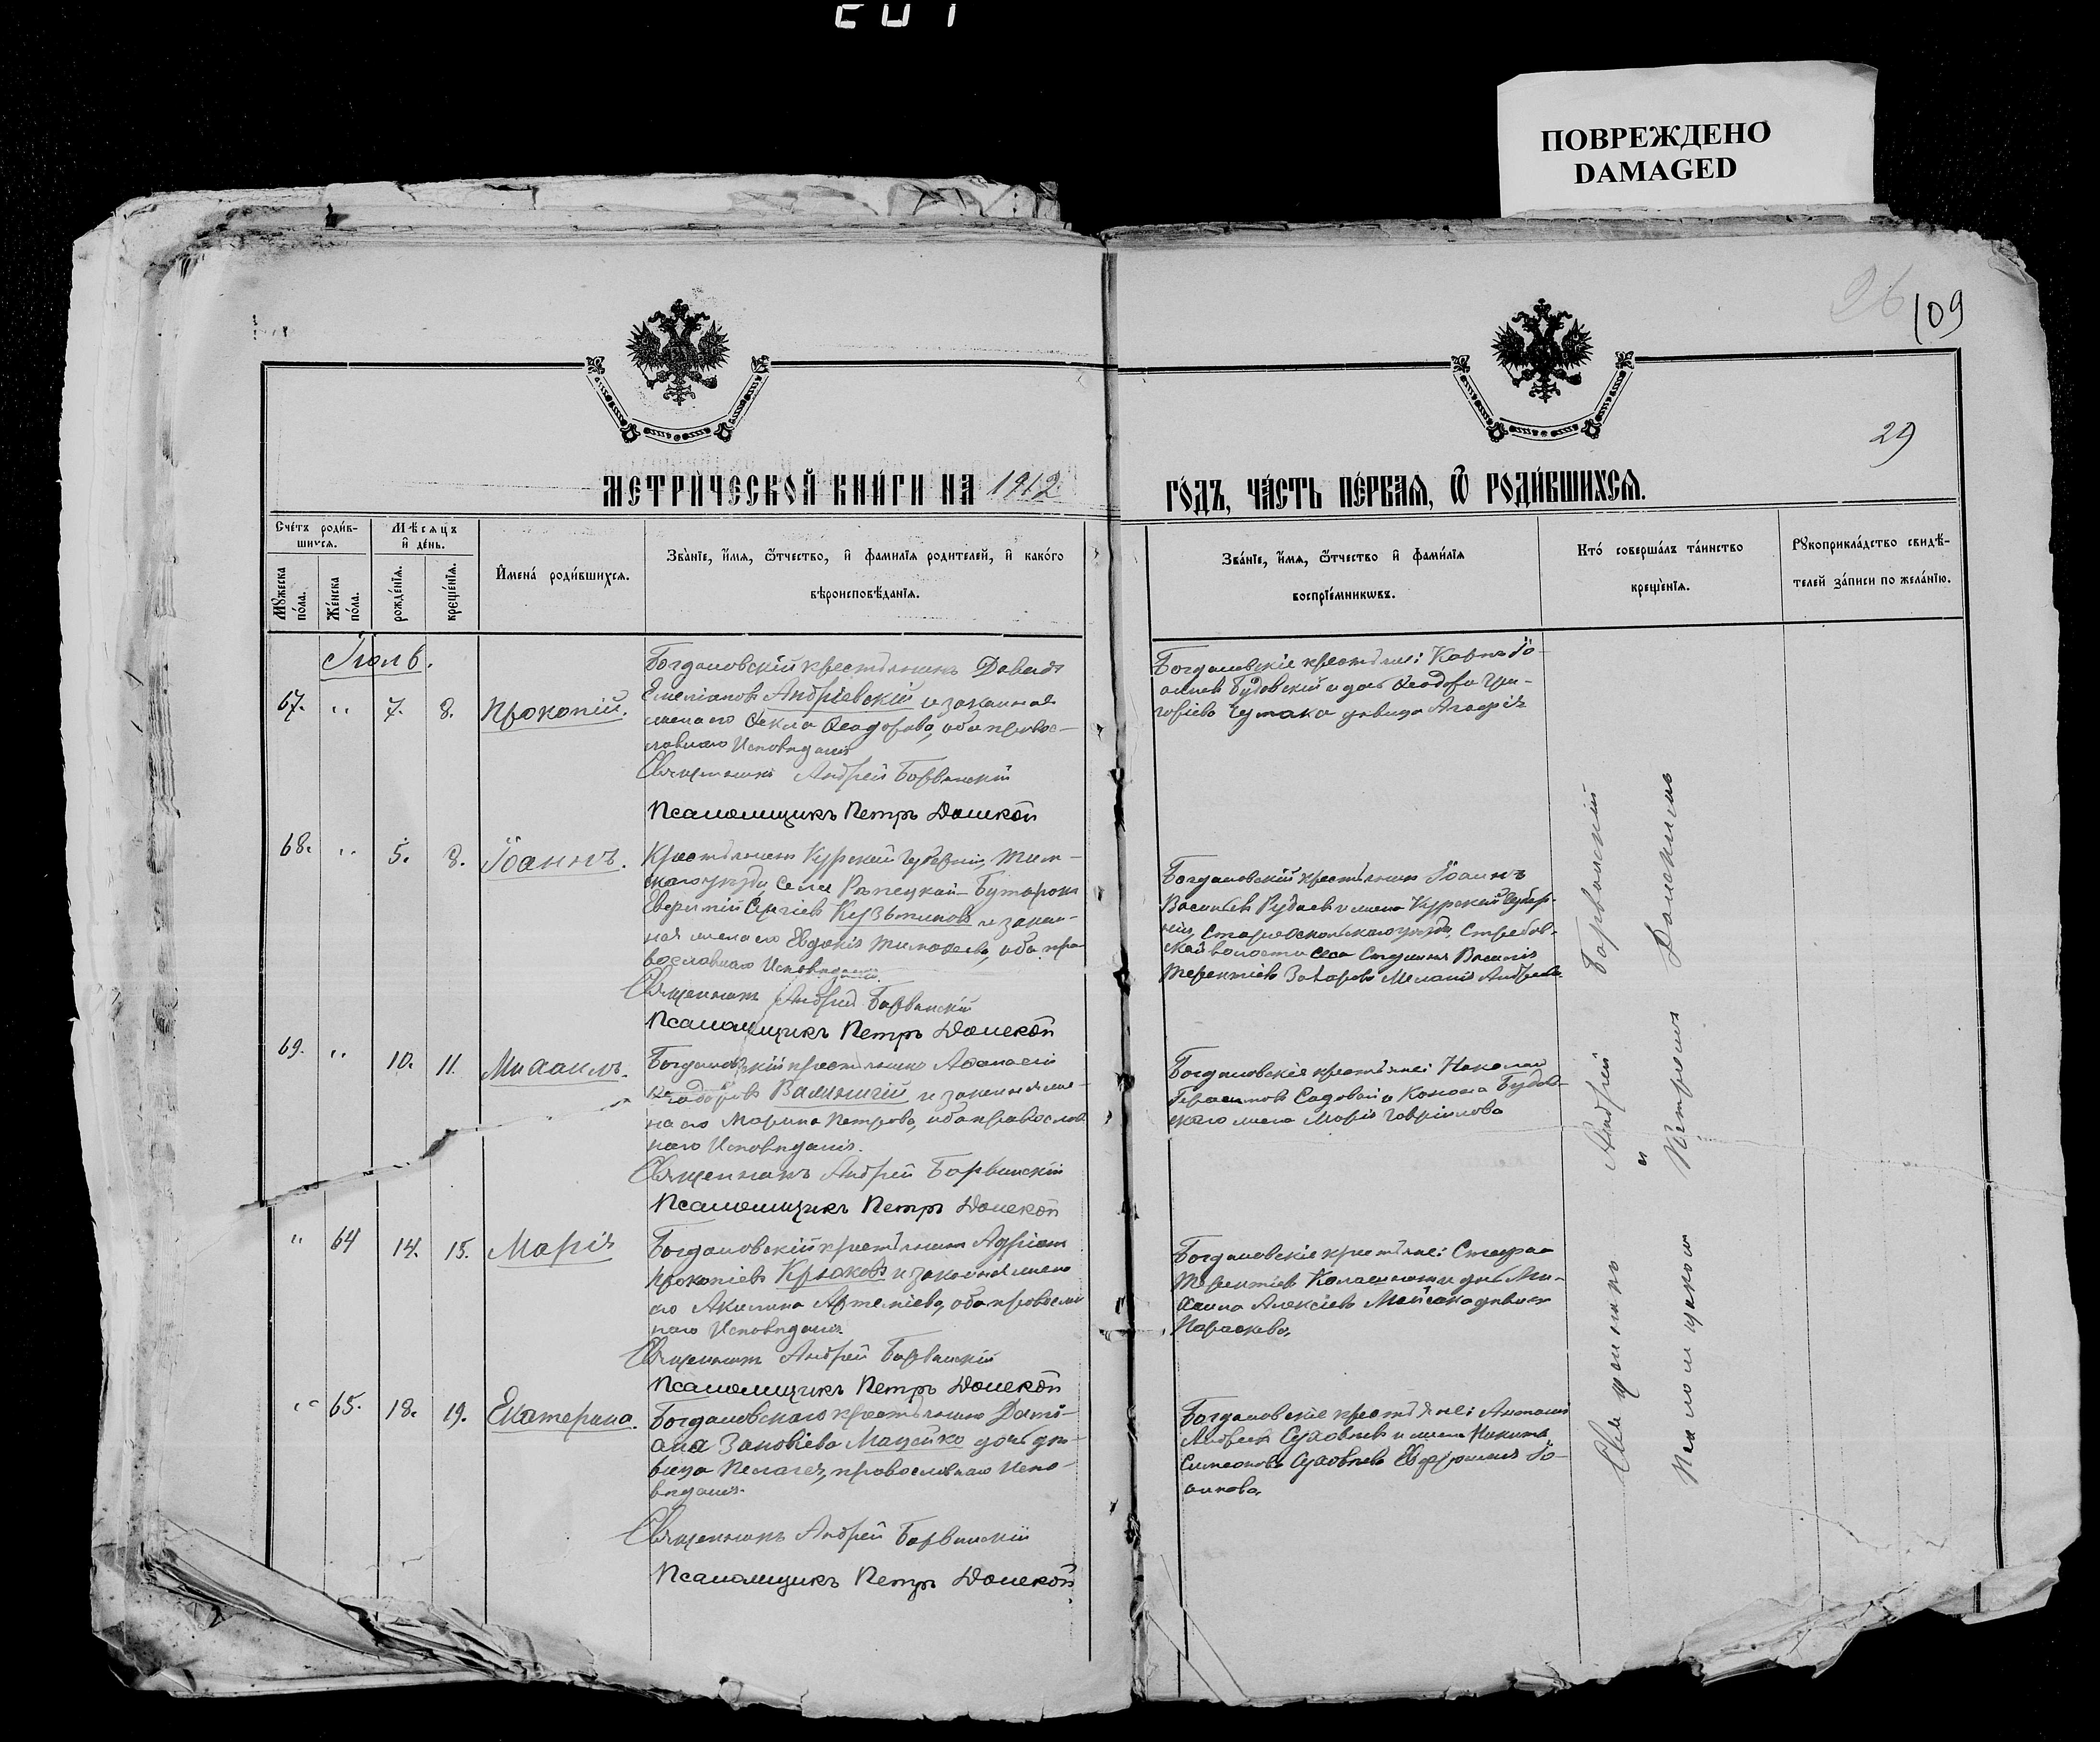 ПОВРЕЖДЕНО
DAMAGED
26
109
29
МЕТРИЧЕСКОЙ КНИГИ НА 1912
ГОДЪ, ЧАСТЬ ПЕРВАЯ, Ѿ РОДИВШИХСЯ.
Счетъ родив-
шихся.
Мѣсяцъ
и день.
Мужеска
пола.
Женска
пола.
рожденія.
крещенія.
Имена родившихся.
Званіе, имя, ѿтчество, и фамилія родителей, и какого
вѣроисповѣданія.
Званіе, имя, ѿтчество и фамилія
воспріемниковъ.
Кто совершалъ таинство
крещенія.
Рукоприкладство свидѣ-
телей записи по желанію.
Іюль.
67. " 7. 8. Прокопій.
Богдановскій крестьянинъ Давидъ
Емеліановъ Андріевскій и законная
жена его Ѳекла Ѳеодорова, оба правос-
лавнаго Исповѣданія
Священникъ Андрей Барвинскій
Псаломщикъ Петръ Донской
Богдановскіе крестьяне: Карпъ Іо-
анновъ Будовскій и дочь Ѳеодора Гри-
горіева Чумака дѣвица Агафія
68. " 5. 8. Іоаннъ.
Крестьянинъ Курской Губерніи, Тим-
скаго уѣзда, села
Сергіевъ Кузьминовъ и закон-
ная жена его Евдокія Тимоѳеева, оба пра-
вославнаго Исповѣданія.
Священникъ Андрей Барвинскій
Псаломщикъ Петръ Донской
Богдановскій крестьянинъ Іоаннъ
Васильевъ и жена Курской Губер-
ніи, Старооскольскаго уѣзда,
ской волости села
Терентіева Захарова Меланія Андреева
69. " 10. 11. Михаилъ.
Богдановскій крестьянинъ Аѳанасій
Ѳеодоровъ и законная же-
на его Марина Петрова, оба православ-
наго Исповѣданія.
Священникъ Андрей Барвинскій
Псаломщикъ Петръ Донской
Богдановскіе крестьяне: Николай
Герасимовъ Садовой и Конона Будов-
скаго жена Марія Гавріилова
" 64 14. 15. Марія
Богдановскій крестьянинъ Адріанъ
Прокопіевъ Крюковъ и законная жена
его Акилина Артеміева, оба православ-
наго Исповѣданія.
Священникъ Андрей Барвинскій
Псаломщикъ Петръ Донской
Богдановскіе крестьяне: Стефанъ
Терентіевъ и дочь Ми-
хаила Алексіева дѣвица
Параскева.
" 65. 18. 19. Екатерина.
Богдановскаго крестьянина Дамі-
ана Зиновіева Мацейко дочь дѣ-
вица Пелагея, православнаго Испо-
вѣданія.
Священникъ Андрей Барвинскій
Псаломщикъ Петръ Донской
Богдановскіе крестьяне: Антоній
Андреевъ и жена Никиты
Симеонова Евфросинія Іо-
аннова.
Священникъ Андрей Барвинскій
и
Псаломщикомъ Петромъ Донскимъ